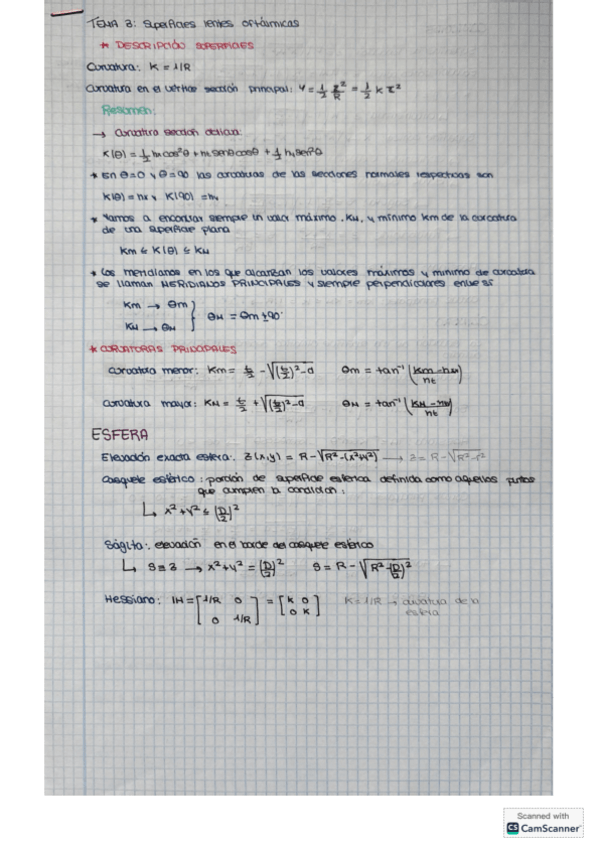 TEMA 3: Superficies lentes oftálmicas
* DESCRIPCIÓN SUPERFICIES
Curvatura: K = 1/R
Curvatura en el vértice sección principal: Y = 1/2 r²/R = 1/2 K r²
Resumen:
→ Curvatura sección oblicua:
K(θ) = 1/2 hx cos²θ + ht senθ cosθ + 1/2 hy sen²θ
* En θ=0 y θ=90 las curvaturas de las secciones normales respectivas son
K(θ) = hx y K(90) = hy
* Vamos a encontrar siempre un valor máximo, KM, y mínimo Km de la curvatura
de una superficie plana
Km ≤ K(θ) ≤ KM
* Los meridianos en los que alcanzan los valores máximos y mínimo de curvatura
se llaman MERIDIANOS PRINCIPALES y siempre perpendiculares entre sí
Km → θm
KM → θM } θM = θm ± 90°
* CURVATURAS PRINCIPALES
Curvatura menor: Km = t/2 - √((t/2)² - d) θm = tan⁻¹ ((Km - hx)/ht)
Curvatura mayor: KM = t/2 + √((t/2)² - d) θM = tan⁻¹ ((KM - hx)/ht)
ESFERA
Elevación exacta esfera: z(x,y) = R - √(R² - (x²+y²)) → z = R - √(R² - r²)
Casquete esférico: porción de superficie esférica definida como aquellos puntos
que cumplen la condición:
↳ x² + y² ≤ (D/2)²
Ságita: elevación en el borde del casquete esférico
↳ S = z → x² + y² = (D/2)² S = R - √(R² - (D/2)²)
Hessiano: IH = [1/R 0; 0 1/R] = [K 0; 0 K] K = 1/R → curvatura de la
esfera
Scanned with
CS CamScanner